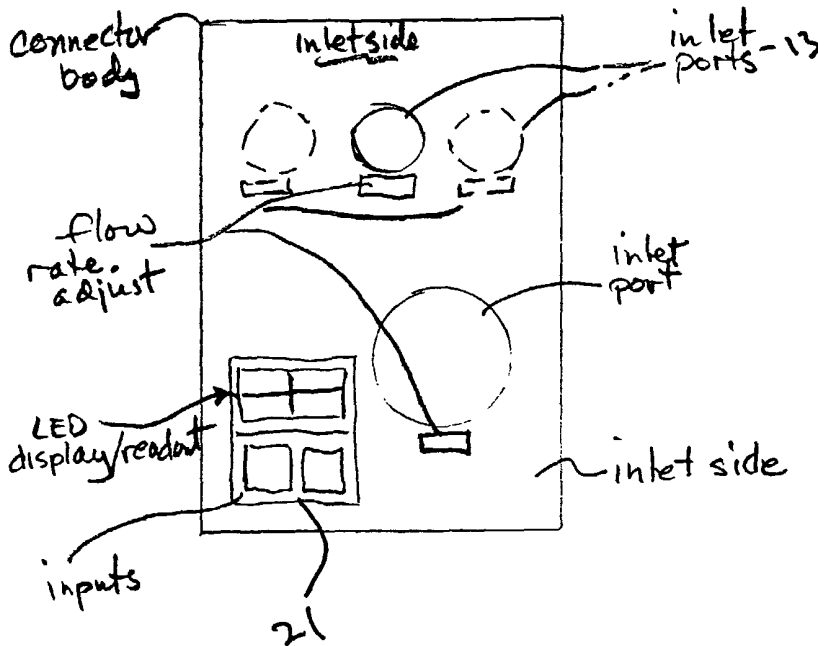 connector
body
inlet side
inlet
ports-13
flow
rate.
adjust
inlet
port
LED
display/readout
inlet side
inputs
21